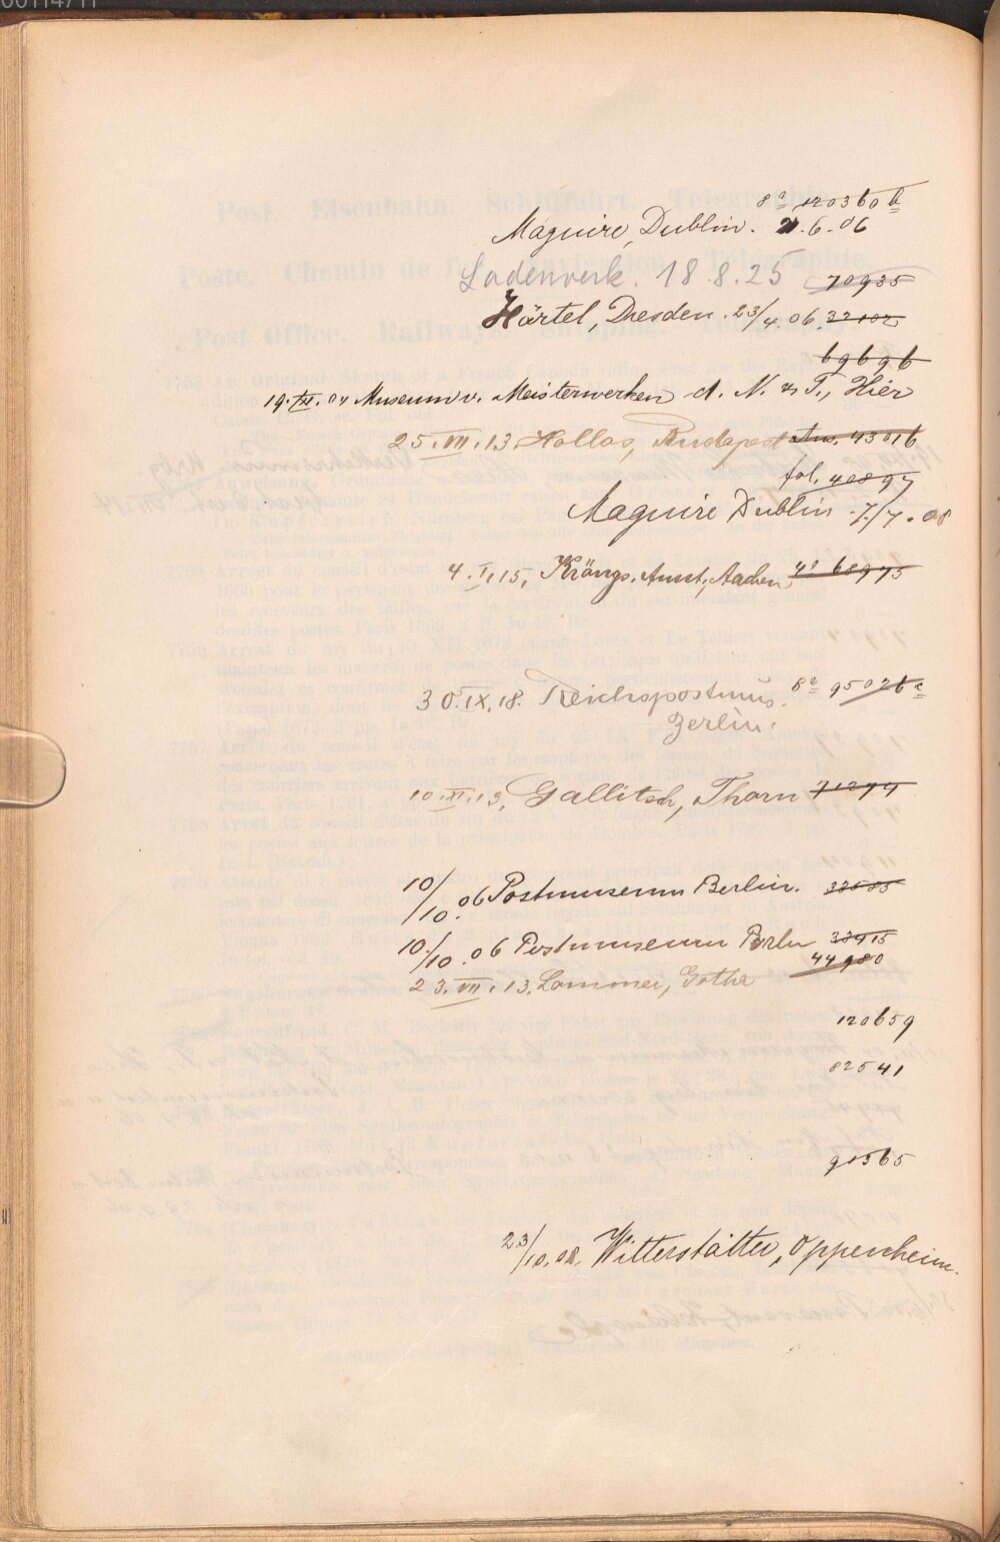 8º 120360 b
Maguire, Dublin. 21.6.06
Ladenverk. 18.8.25 70935
Härtel, Dresden. 23/4.06. 32102
69696
19.XII.04 Museum v. Meisterwerken d. N. u. T., Hier
25.VII.13. Hollos, Budapest 43016
fol. 40897
Maguire Dublin 7/7.08
4.I.15, Aachen, 4º 68975
30.IX.18. Reichspostmus. 8º 95026 c
Berlin.
10.XI.13, Gallitsch, Thorn 71274
10/10.06 Postmuseum Berlin. 33585
10/10.06 Postmuseum Berlin 33915
44980
23.VII.13. Lommer, Gotha
120659
82541
91565
23/10.08. Witterstätter, Oppenheim.